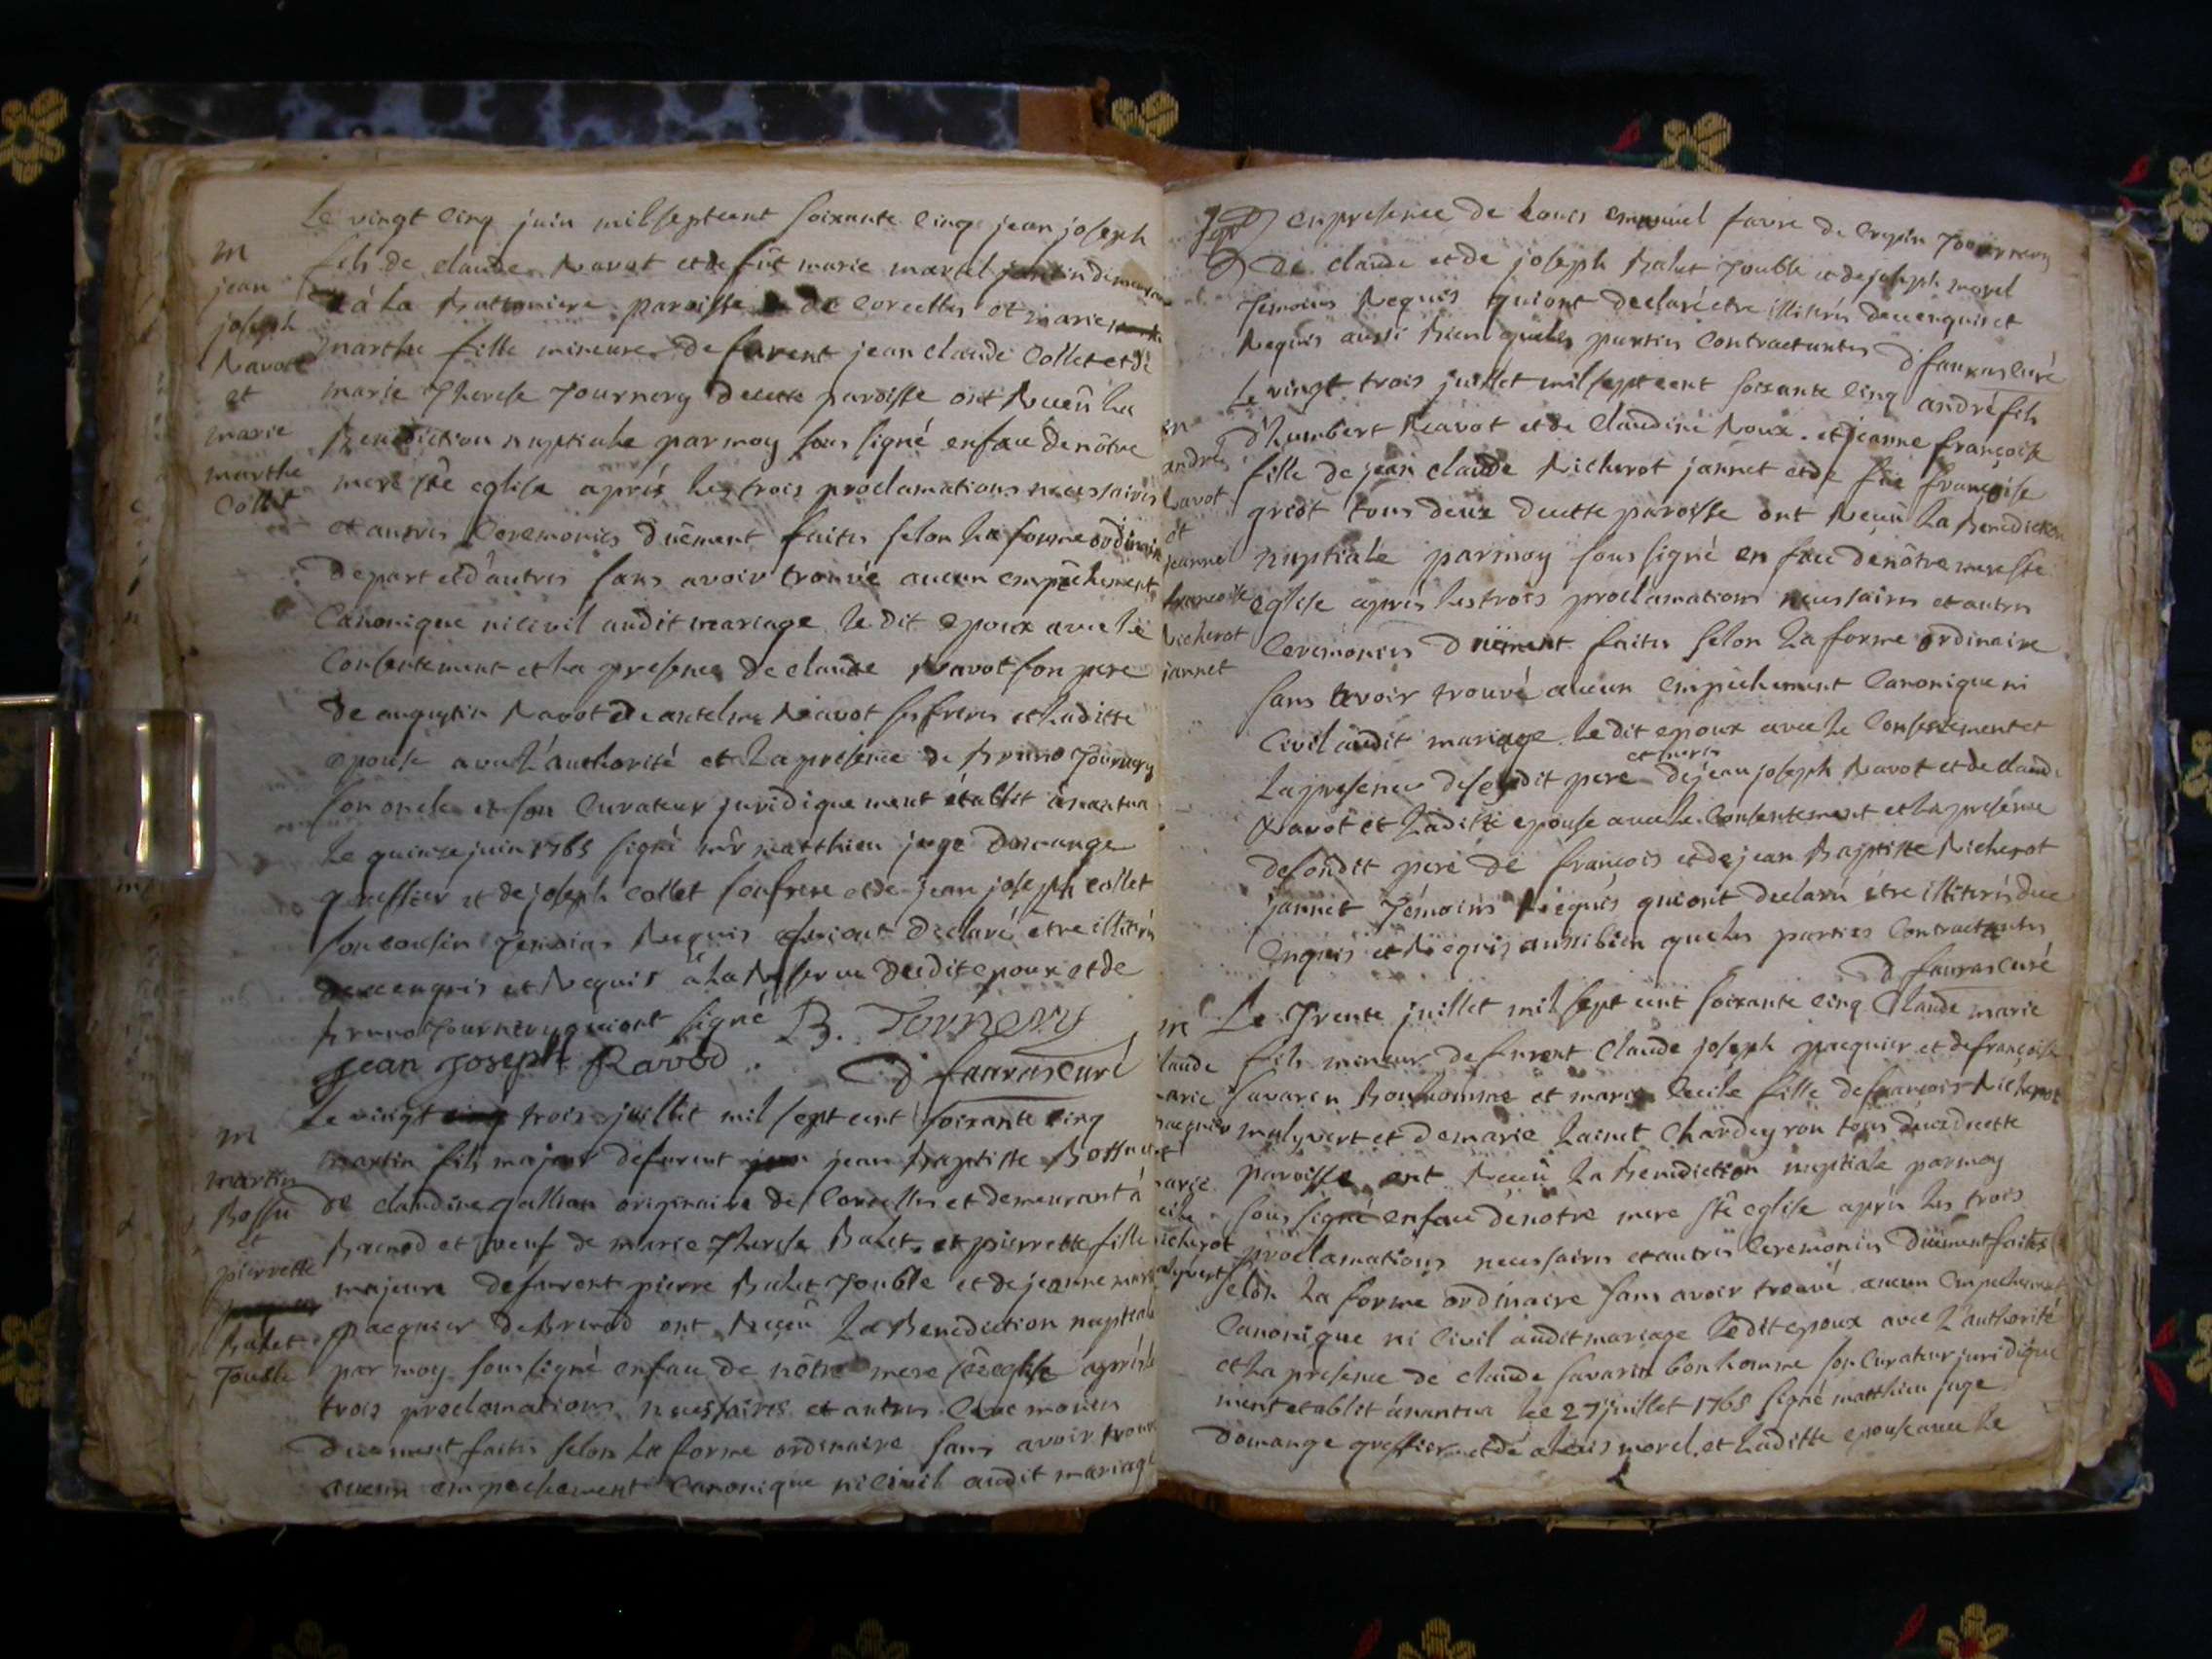 Le vingt cinq juin mil sept cent soixante cinq jean joseph
fils de claude Ravot et de fut marie martel demeurant
à la Battoniere paroisse de Corcelles et marie
marthe fille mineure de furent jean claude Collet et de
marie Therese Tournery de cette paroisse ont Receû La
Benediction nuptiale par moy sous signé en face de nôtre
mere ste eglise aprés les trois proclamations necessaires
et autres Ceremonies dûement faites selon La forme ordinaire
de part et d'autres sans avoir trouvé aucun empêchement
Canonique ni civil audit mariage Le dit epoux avec le
Consentement et La presence de claude Ravot son pere
de augustin Ravot de antelme Ravot ses freres et Laditte
epouse avec L'authorité et La presence de Bruno Tournery
son oncle et son Curateur juridiquement établit ânantua
Le quinze juin 1765 signé mr matthieu juge domange
greffier et de joseph collet son frere et de jean joseph collet
son cousin Temoins Requis qui ont declaré être illitérés
de ce enquis et Requis à La Reserve dudit epoux et de
Bruno Tournery qui ont signé B. Tornery
jean joseph Ravod . D favras curé
m
jean
joseph
Ravot
et
marie
marthe
Collet
Le vingt trois juillet mil sept cent soixante cinq
martin fils majeur de furent jean Baptiste Bossu et
de claudine gallian originaire de Corcelles et demeurant à
Brenod et veuf de marie Therese Balet, et pierrette fille
majeure de furent pierre Balet Jouble et de jeanne marie
pacquier de Brenod ont Receû La Benediction nuptiale
par moy sous signé en face de nôtre mere ste eglise aprés les
trois proclamations necessaires et autres Ceremonies
duement faites selon La forme ordinaire sans avoir trouvé
aucun empechement Canonique ni civil audit mariage
m
martin
Bossu
et
pierrette
Balet
Jouble
en presence de Louis emanuel favre de crepin Tournery
de claude et de joseph Balet Jouble et de joseph morel
Temoins Requis qui ont declaré etre illitérés de ce enquis et
Requis aussi Bien que les parties Contractantes D favras curé
Le vingt trois juillet mil sept cent soixante cinq andré fils
d'humbert Ravot et de Claudine Roux. et jeanne françoise
fille de jean claude Richerot jannet et de fue françoise
griot tous deux de cette paroisse ont Receû La Benediction
nuptiale par moy sous signé en face de nôtre mere ste
eglise aprés les trois proclamations necessaires et autres
Ceremonies dûement faites selon La forme ordinaire
sans avoir trouvé aucun empêchement Canonique ni
Civil audit mariage. Le dit epoux avec le Consentement et
La presence de sondit pere et freres de jean joseph Ravot et de claude
Ravot et Laditte epouse avec le Consentement et La presence
de sondit pere de francois et de jean Baptiste Richerot
jannet Témoins Requis qui ont declaré être illiterés de ce
enquis et Requis aussi bien que les parties Contractantes
D favras curé
m
andré
Ravot
et
jeanne
francoise
Richerot
jannet
Le Trente juillet mil sept cent soixante cinq Claude marie
fils mineur de furent Claude joseph pacquier et de françoise
Savarin Bonhomme et marie Cecile fille de francois Richerot
malyvert et de marie Lainet Chardeyron tous deux de cette
paroisse ont Receû La Benediction nuptiale par moy
sous signé en face de notre mere ste eglise aprés les trois
proclamations necessaires et autres Ceremonies dûement faites
selon La forme ordinaire sans avoir trouvé aucun empechement
Canonique ni Civil audit mariage Le dit epoux avec L'authorité
et La presence de claude Savarin bonhomme son Curateur juridique
ment etablit ânantua Le 27 juillet 1765 signé matthieu juge
domange greffier et de alexis morel. et Laditte epouse avec Le
m
claude
marie
pacquier
et
marie
cecile
Richerot
malyvert